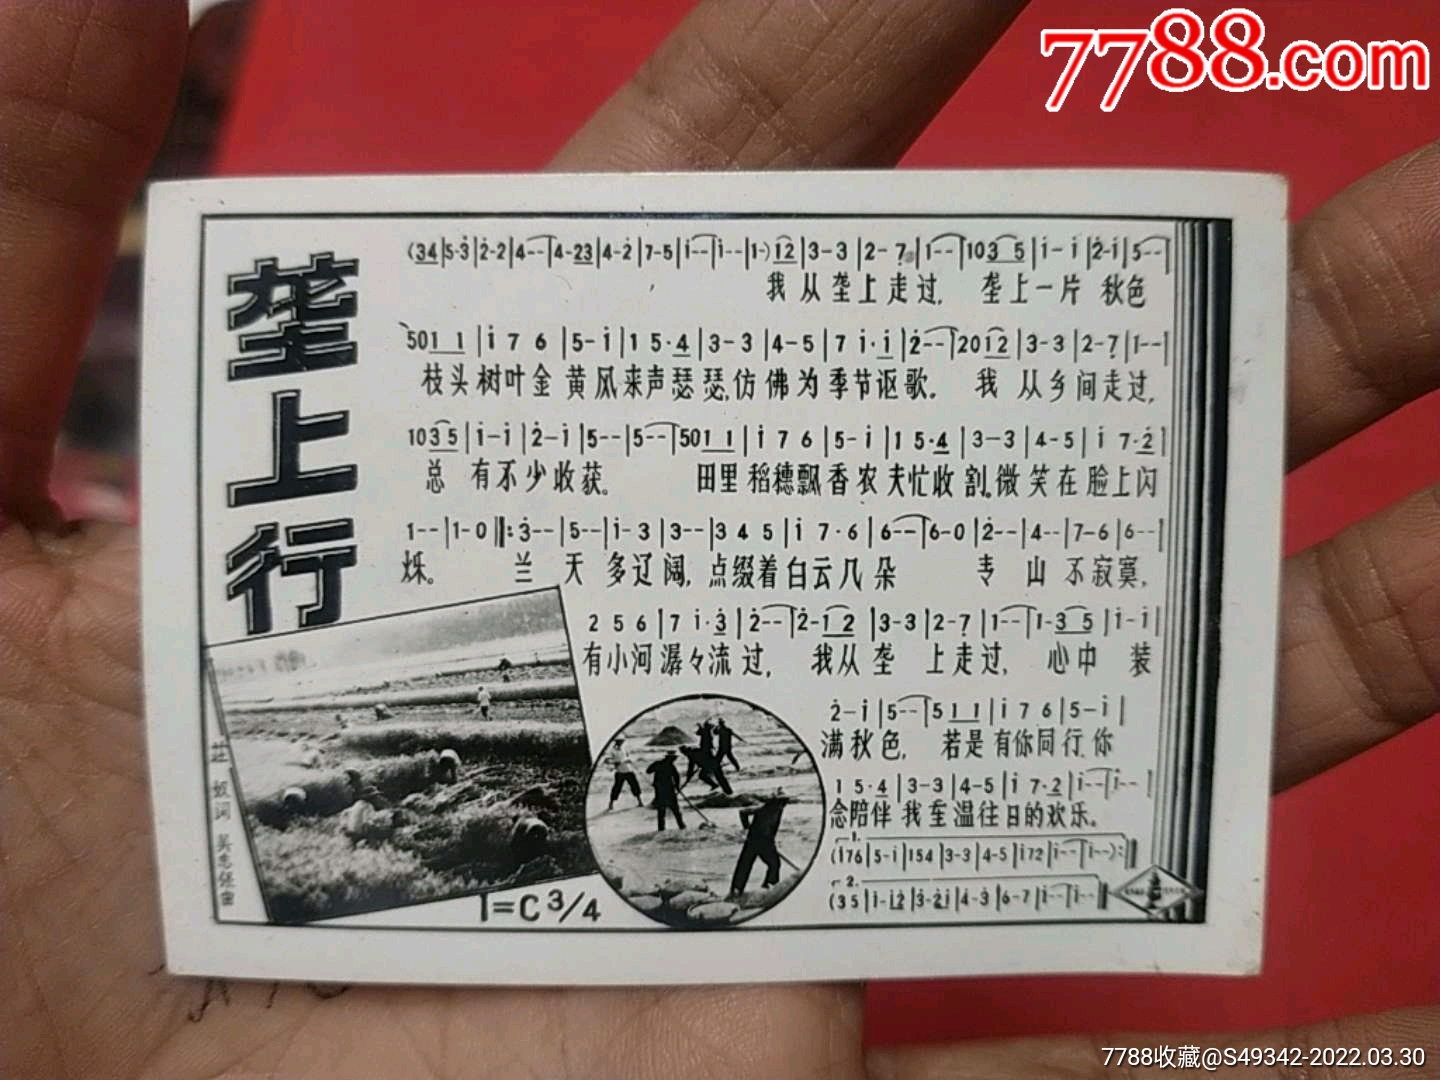 7788.com
垄上行
(34|5-3|2-2|4--|4-23|4-2|7-5|i--|i--|1-)12|3-3|2-7|1--|1035|i-i|2-i|5--|
我从垄上走过, 垄上一片秋色
5011|i76|5-i|15·4|3-3|4-5|7i·i|2--|2012|3-3|2-7|1--|
枝头树叶金黄风来声瑟瑟,仿佛为季节讴歌. 我从乡间走过,
1035|i-i|2-i|5--|5--|5011|i76|5-i|15·4|3-3|4-5|i7·2|
总有不少收获。 田里稻穗飘香农夫忙收割。微笑在脸上闪
1--|1-0‖:3--|5--|i-3|3--|345|i7·6|6--|6-0|2--|4--|7-6|6--|
烁。 兰天多辽阔,点缀着白云几朵 山不寂寞,
256|7i·3|2--|2-12|3-3|2-7|1--|1-35|i-i|
有小河潺々流过, 我从垄上走过, 心中装
2-i|5--|511|i76|5-i|
满秋色, 若是有你同行.你
15·4|3-3|4-5|i7·2|i--|i--|
念陪伴我重温往日的欢乐。
1.
(i76|5-i|154|3-3|4-5|i72|i--|i--):‖
2.
(35|i-i2|3-2i|4-3|6-7|i--|i--‖
庄奴词 吴志强曲
1=C 3/4
7788收藏@S49342-2022.03.30